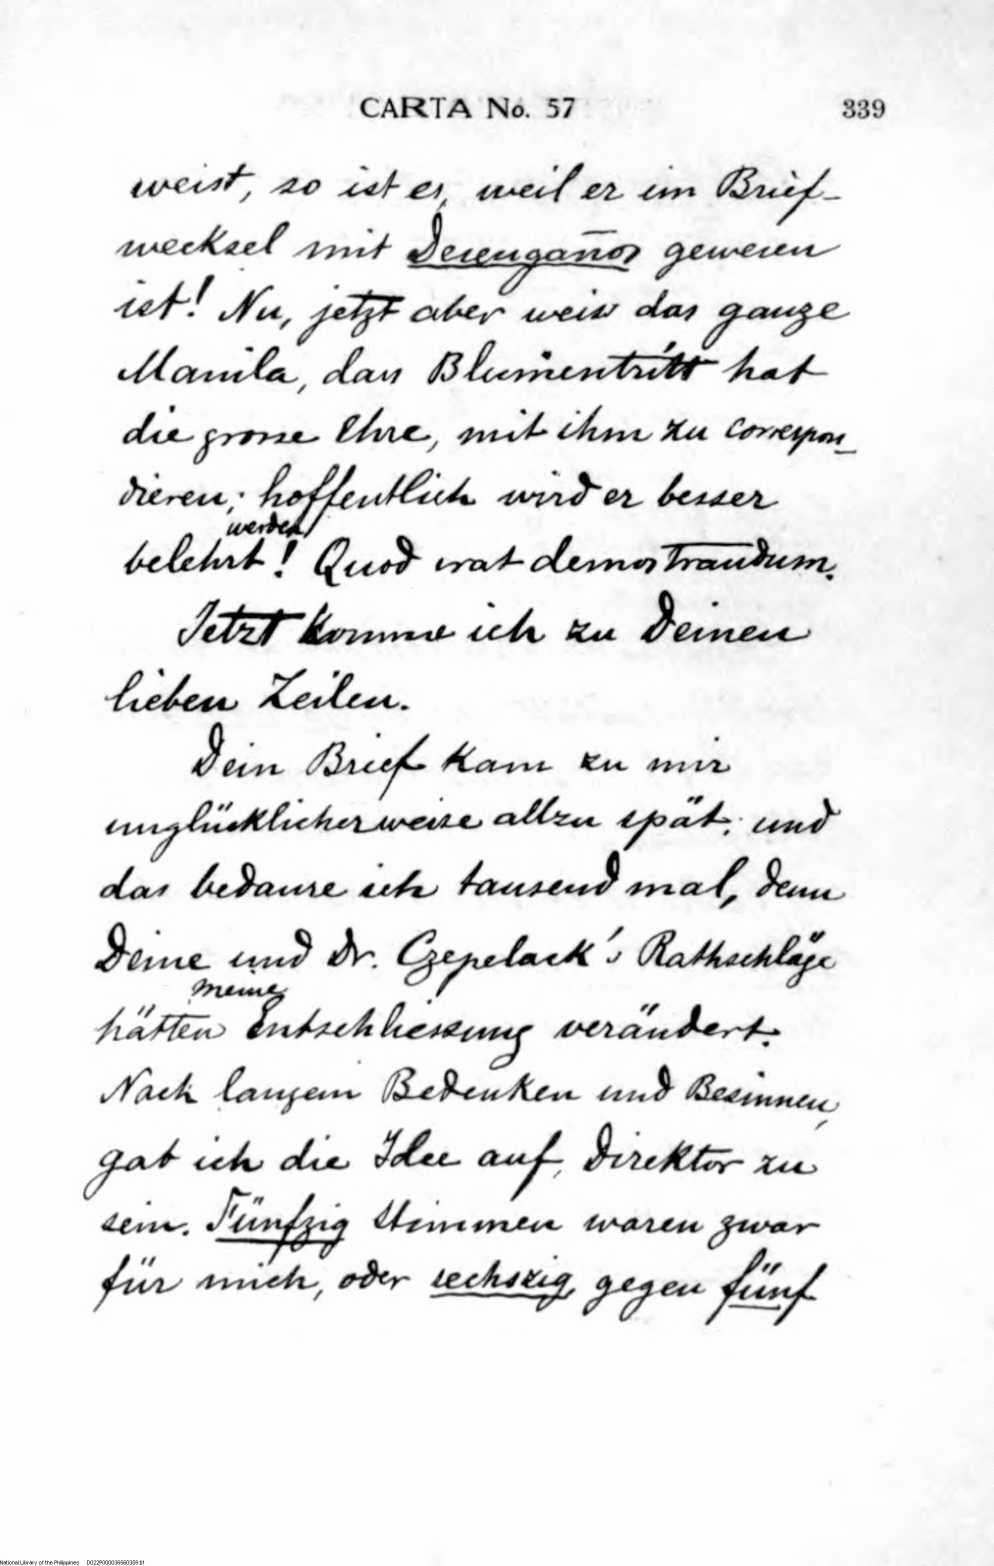 CARTA No. 57 339
weist, so ist es, weil er im Brief-
wecksel mit Desengaños gewesen
ist! Nu, jetzt aber weis das ganze
Manila, dass Blumentritt hat
die grosse Ehre, mit ihm zu correspon-
dieren; hoffentlich wird er besser
werden
belehrt! Quod erat demostrandum.
Jetzt komme ich zu Deinen
lieben Zeilen.
Dein Brief kam zu mir
unglücklicherweise allzu spät; und
das bedaure ich tausend mal, denn
Deine und Dr. Czepelack's Rathschläge
meine
hätten Entschliessung verändert.
Nach langem Bedenken und Besinnen,
gab ich die Idee auf, Direktor zu
sein. Fünfzig Stimmen waren zwar
für mich, oder sechszig gegen fünf
National Library of the Philippines